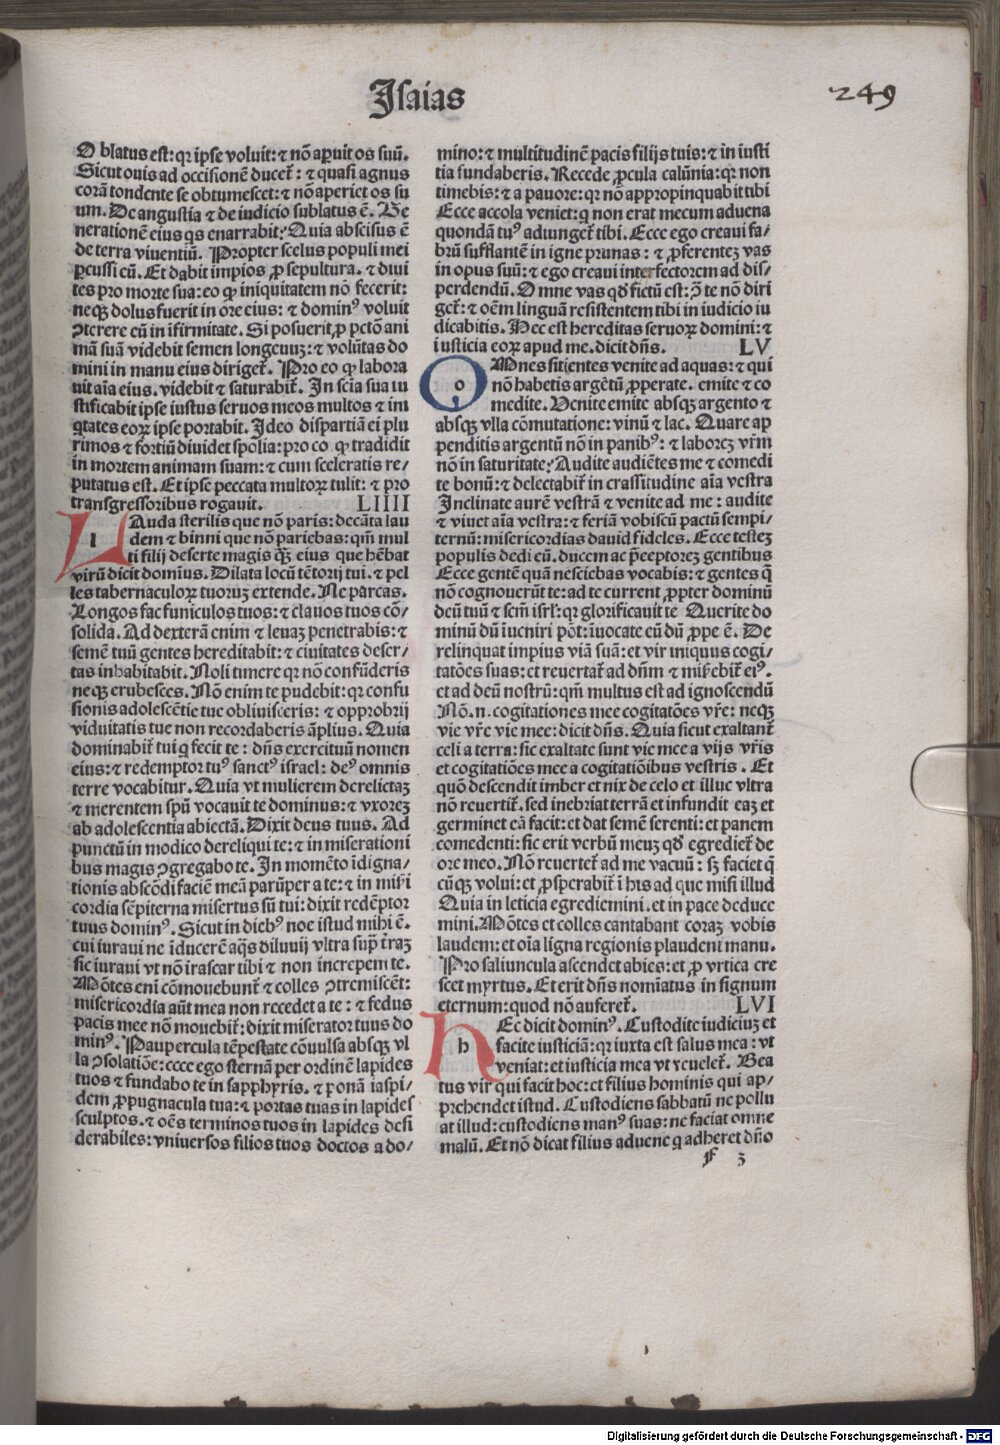 Isaias
249
Oblatus est: qꝛ ipse voluit: ⁊ nõ apuit os suũ.
Sicut ouis ad occisionẽ ducet᷑: ⁊ quasi agnus
corã tondente se obtumescet: ⁊ nõ aperiet os su
um. De angustia ⁊ de iudicio sublatus ẽ. Ge
nerationẽ eius q̇s enarrabit? Quia abscisus ẽ
de terra viuentiũ. Propter scelus populi mei
ꝑcussi eũ. Et dabit impios ꝓ sepultura. ⁊ diui
tes pro morte sua: eo ꝙ iniquitatem nõ fecerit:
neqꝫ dolus fuerit in ore eius: ⁊ dominꝰ voluit
ꝯterere eũ in ĩfirmitate. Si posuerit ꝓ pctõ ani
mã suã videbit semen longeuuꝫ: ⁊ volũtas do
mini in manu eius diriget᷑. Pro eo ꝙ labora
uit aĩa eius. videbit ⁊ saturabit᷑. In scĩa sua iu
stificabit ipse iustus seruos meos multos ⁊ ini
q̇tates eoꝝ ipse portabit. Ideo dispartiã ei plu
rimos ⁊ fortiũ diuidet spolia: pro eo ꝙ tradidit
in mortem animam suam: ⁊ cum sceleratis re/
putatus est. Et ipse peccata multoꝝ tulit: ⁊ pro
transgressoribus rogauit. LIIII
LAuda sterilis que nõ paris: decãta lau
dem ⁊ hinni que nõ pariebas: qm̃ mul
ti filij deserte magis q̃ꝫ eius que hẽbat
virũ dicit domĩus. Dilata locũ tẽtorij tui. ⁊ pel
les tabernaculoꝝ tuoruꝫ extende. Ne parcas.
Longos fac funiculos tuos: ⁊ clauos tuos cõ/
solida. Ad dexterã enim ⁊ leuaꝫ penetrabis: ⁊
semẽ tuũ gentes hereditabit: ⁊ ciuitates deser/
tas inhabitabit. Noli timere qꝛ nõ confũderis
neqꝫ erubesces. Nõ enim te pudebit: qꝛ confu
sionis adolescẽtie tue obliuisceris: ⁊ opprobrij
viduitatis tue non recordaberis ãplius. Quia
dominabit᷑ tui q̇ fecit te: dñs exercituũ nomen
eius: ⁊ redemptor tuꝰ sanctꝰ israel: deꝰ omnis
terre vocabitur. Quia vt mulierem derelictaꝫ
⁊ merentem spũ vocauit te dominus: ⁊ vxoreꝫ
ab adolescentia abiectã. Dixit deus tuus. Ad
punctũ in modico dereliqui te: ⁊ in miserationi
bus magis ꝯgregabo te. In momẽto ĩdigna/
tionis abscõdi faciẽ meã parũper a te: ⁊ in mis̃i
cordia sẽpiterna misertus sũ tui: dixit redẽptor
tuus dominꝰ. Sicut in diebꝰ noe istud mihi ẽ.
cui iuraui ne ĩducerẽ aq̃s diluuij vltra suꝑ t̃raꝫ
sic iuraui vt nõ irascar tibi ⁊ non increpem te.
Mõtes eni cõmouebunt᷑ ⁊ colles ꝯtremiscẽt:
misericordia aũt mea non recedet a te: ⁊ fedus
pacis mee nõ mouebit᷑: dixit miserator tuus do
minꝰ. Paupercula tẽpestate cõuulsa absqꝫ vl
la ꝯsolatiõe: ecce ego sternã per ordinẽ lapides
tuos ⁊ fundabo te in sapphyris. ⁊ ponã iaspi/
dem ꝓpugnacula tua: ⁊ portas tuas in lapides
sculptos. ⁊ oẽs terminos tuos in lapides desi
derabiles: vniuersos filios tuos doctos a do/
mino: ⁊ multitudinẽ pacis filijs tuis: ⁊ in iusti
tia fundaberis. Recede ꝓcula calũnia: qꝛ non
timebis: ⁊ a pauore: qꝛ nõ appropinquabit tibi
Ecce accola veniet: q̇ non erat mecum aduena
quondã tuꝰ adiunget᷑ tibi. Ecce ego creaui fa/
brũ sufflantẽ in igne prunas: ⁊ ꝓferenteꝫ vas
in opus suũ: ⁊ ego creaui interfectorem ad dis/
perdendũ. Omne vas qd̃ fictũ est: ꝯ̃ te nõ diri
get᷑: ⁊ oẽm linguã resistentem tibi in iudicio iu
dicabitis. Hec est hereditas seruoꝝ domini: ⁊
iusticia eoꝝ apud me. dicit dñs. LV
OMnes sitientes venite ad aquas: ⁊ qui
nõ habetis argẽtũ ꝓperate. emite ⁊ co
medite. Venite emite absqꝫ argento ⁊
absqꝫ vlla cõmutatione: vinũ ⁊ lac. Quare ap
penditis argentũ nõ in panibꝰ: ⁊ laboreꝫ vr̃m
nõ in saturitate? Audite audiẽtes me ⁊ comedi
te bonũ: ⁊ delectabit᷑ in crassitudine aĩa vestra
Inclinate aurẽ vestrã ⁊ venite ad me: audite
⁊ viuet aĩa vestra: ⁊ feriã vobiscũ pactũ sempi/
ternũ: misericordias dauid fideles. Ecce testeꝫ
populis dedi eũ. ducem ac p̃ceptoreꝫ gentibus
Ecce gentẽ quã nesciebas vocabis: ⁊ gentes q̃
nõ cognouerũt te: ad te current ꝓpter dominũ
deũ tuũ ⁊ scm̃ isrl̃: qꝛ glorificauit te Querite do
minũ dũ iuueniri põt: ĩuocate eũ dũ ꝓpe ẽ. De
relinquat impius viã suã: et vir iniquus cogi/
tatões suas: et reuertat᷑ ad dñm ⁊ mis̃ebit᷑ eiꝰ.
et ad deũ nostrũ: qm̃ multus est ad ignoscendũ
Nõ .n. cogitationes mee cogitatões vr̃e: neqꝫ
vie vr̃e vie mee: dicit dñs. Quia sicut exaltant᷑
celi a terra: sic exaltate sunt vie mee a vijs vr̃is
et cogitatiões mee a cogitatiõibus vestris. Et
quõ descendit imber et nix de celo et illuc vltra
nõ reuertit᷑. sed inebriat terrã et infundit eaꝫ et
germinet eã facit: et dat semẽ serenti: et panem
comedenti: sic erit verbũ meuꝫ qd̃ egrediet᷑ de
ore meo. Nõ reuertet᷑ ad me vacuũ: sꝫ faciet q̃
cũqꝫ volui: et ꝓsꝑabit᷑ ĩ his ad que misi illud
Quia in leticia egrediemini. et in pace deduce
mini. Mõtes et colles cantabunt coraꝫ vobis
laudem: et oĩa ligna regionis plaudent manu.
Pro saliuncula ascendet abies: et ꝓ vrtica cre
scet myrtus. Et erit dñs nomĩatus in signum
eternum: quod nõ auferet᷑. LVI
HEc dicit dominꝰ. Custodite iudiciuꝫ et
facite iusticiã: qꝛ iuxta est salus mea: vt
veniat: et iusticia mea vt reuelet᷑. Bea
tus vir qui facit hoc: et filius hominis qui ap/
prehendet istud. Custodiens sabbatũ ne pollu
at illud: custodiens manꝰ suas: ne faciat omne
malũ. Et nõ dicat filius aduene q̇ adheret dño
F 3
Digitalisierung gefördert durch die Deutsche Forschungsgemeinschaft - DFG